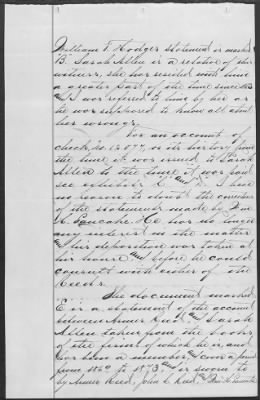 William T. Hodges statement is marked
"B." Sarah Allen is a relative of this
witness, she has resided with him
a greater part of the time since
and I was referred to him by her as
he was supposed to know all about
her wrongs.
For an account of
check, No. 12077, or its history from
the time it was issued to Sarah
Allen to the time it was paid
see exhibits C and D. I have
no reason to doubt the correctness
of the statements made by
Pancake. He has no longer
any interest in the matter
and his deposition was taken at
his house and before he could
consult with either of the
Reeds.
The document marked
E is a statement of the account
between Amer Reed and Sarah
Allen taken from the books
of the firm of which he is, and
has been a member, and covers a period
from 1862 to 1873 and is sworn to
by Amer Reed, John C. Reed,